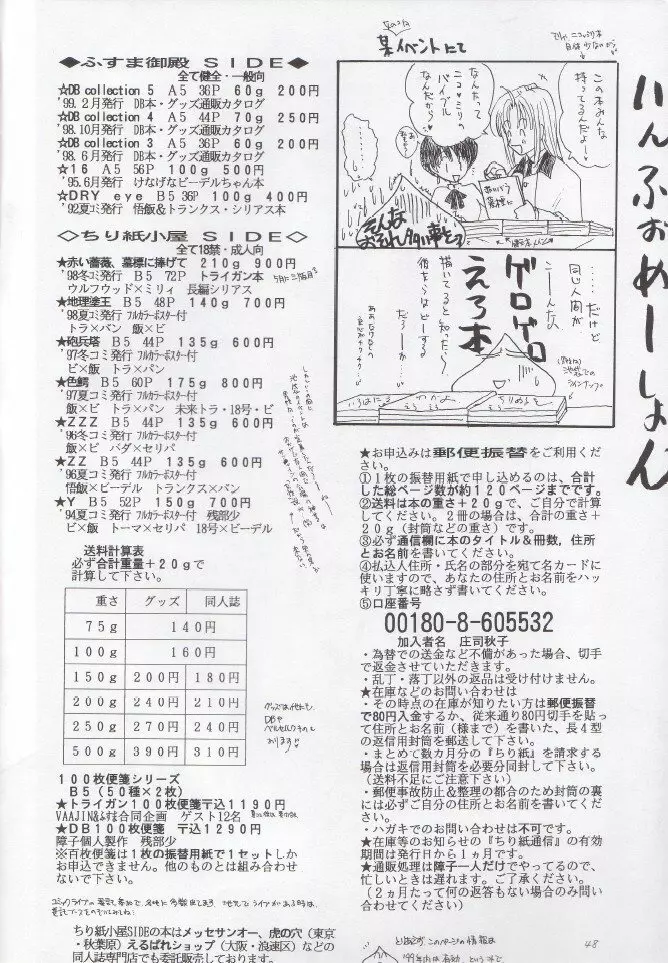 いんふぉめーしょん
某イベントにて
この本みんな
持ってるんだよー
なんたって
バイブル
なんだから
そんな
……だけど
同じ人間が
こーんな
ゲロゲロ
えろ本
描いてると知ったら
彼をらはどーする
だろーか…
◆ふすま御殿 SIDE◆
全て健全・一般向
☆DB collection 5 A5 36P 60g 200円
'99.2月発行 DB本・グッズ通販カタログ
☆DB collection 4 A5 44P 70g 250円
'98.10月発行 DB本・グッズ通販カタログ
☆DB collection 3 A5 36P 60g 200円
'98.6月発行 DB本・グッズ通販カタログ
☆16 A5 56P 100g 500円
'95.6月発行 けなげなビーデルちゃん本
☆DRY eye B5 36P 100g 400円
'92夏コミ発行 悟飯&トランクス・シリアス本
◇ちり紙小屋 SIDE◇
全て18禁・成人向
★赤い薔薇、墓標に捧げて 210g 900円
'98冬コミ発行 B5 72P トライガン本
ウルフウッド×ミリィ 長編シリアス
★地理塗王 B5 48P 140g 700円
'98夏コミ発行 フルカラーポスター付
トラ×パン 飯×ビ
★砲兵塔 B5 44P 135g 600円
'97冬コミ発行 フルカラーポスター付
ビ×飯 トラ×パン
★色鰐 B5 60P 175g 800円
'97夏コミ発行 フルカラーポスター付
飯×ビ トラ×パン 未来トラ・18号・ビ
★ZZZ B5 44P 135g 600円
'96冬コミ発行 フルカラーポスター付
飯×ビ バダ×セリパ
★ZZ B5 44P 135g 600円
'96夏コミ発行 フルカラーポスター付
悟飯×ビーデル トランクス×パン
★Y B5 52P 150g 700円
'94夏コミ発行 フルカラーポスター付 残部少
ビ×飯 トーマ×セリパ 18号×ビーデル
送料計算表
必ず合計重量+20gで
計算して下さい。
重さ グッズ 同人誌
75g 140円
100g 160円
150g 200円 180円
200g 240円 210円
250g 270円 240円
500g 390円 310円
100枚便箋シリーズ
B5(50種×2枚)
★トライガン100枚便箋〒込1190円
VAAJIN&ふすま合同企画 ゲスト12名
★DB100枚便箋 〒込1290円
障子個人製作 残部少
※百枚便箋は1枚の振替用紙で1セットしか
お申込できません。他のものとは組み合わせ
ないで下さい。
ちり紙小屋SIDEの本はメッセサンオー、虎の穴(東京
・秋葉原)えるぱれショップ(大阪・浪速区)などの
同人誌専門店でも委託販売しております。
★お申込みは郵便振替をご利用くだ
さい。
①1枚の振替用紙で申し込めるのは、合計
した総ページ数が約120ページまでです。
②送料は本の重さ+20gで、ご自分で計算
してください。2冊の場合は、合計の重さ+
20g(封筒などの重さ)です。
③必ず通信欄に本のタイトル&冊数、住所
とお名前を書いてください。
④払込人住所・氏名の部分を宛て名カードに
使いますので、あなたの住所とお名前をハッ
キリ丁寧に略さず書いてください。
⑤口座番号
00180-8-605532
加入者名 庄司秋子
・為替での送金など不備があった場合、切手
で返金させていただきます。
・乱丁・落丁以外の返品は受け付けません。
★在庫などのお問い合わせは
・その時点の在庫が知りたい方は郵便振替
で80円入金するか、従来通り80円切手を貼っ
て住所とお名前(様まで)を書いた、長4型
の返信用封筒を郵送して下さい。
・まとめて数カ月分の『ちり紙』を請求する
場合は返信用封筒を必要分同封して下さい。
(送料不足にご注意下さい)
・郵便事故防止&整理の都合のため封筒の裏
には必ずご自分の住所とお名前を書いてくだ
さい。
・ハガキでのお問い合わせは不可です。
★在庫等のお知らせの『ちり紙通信』の有効
期間は発行日から1ヵ月です。
★通販処理は障子一人だけでやってるので、
忙しいときは遅れます。ご了承ください。
(2ヵ月たって何の返答もない場合のみ問い
合わせてください)
48